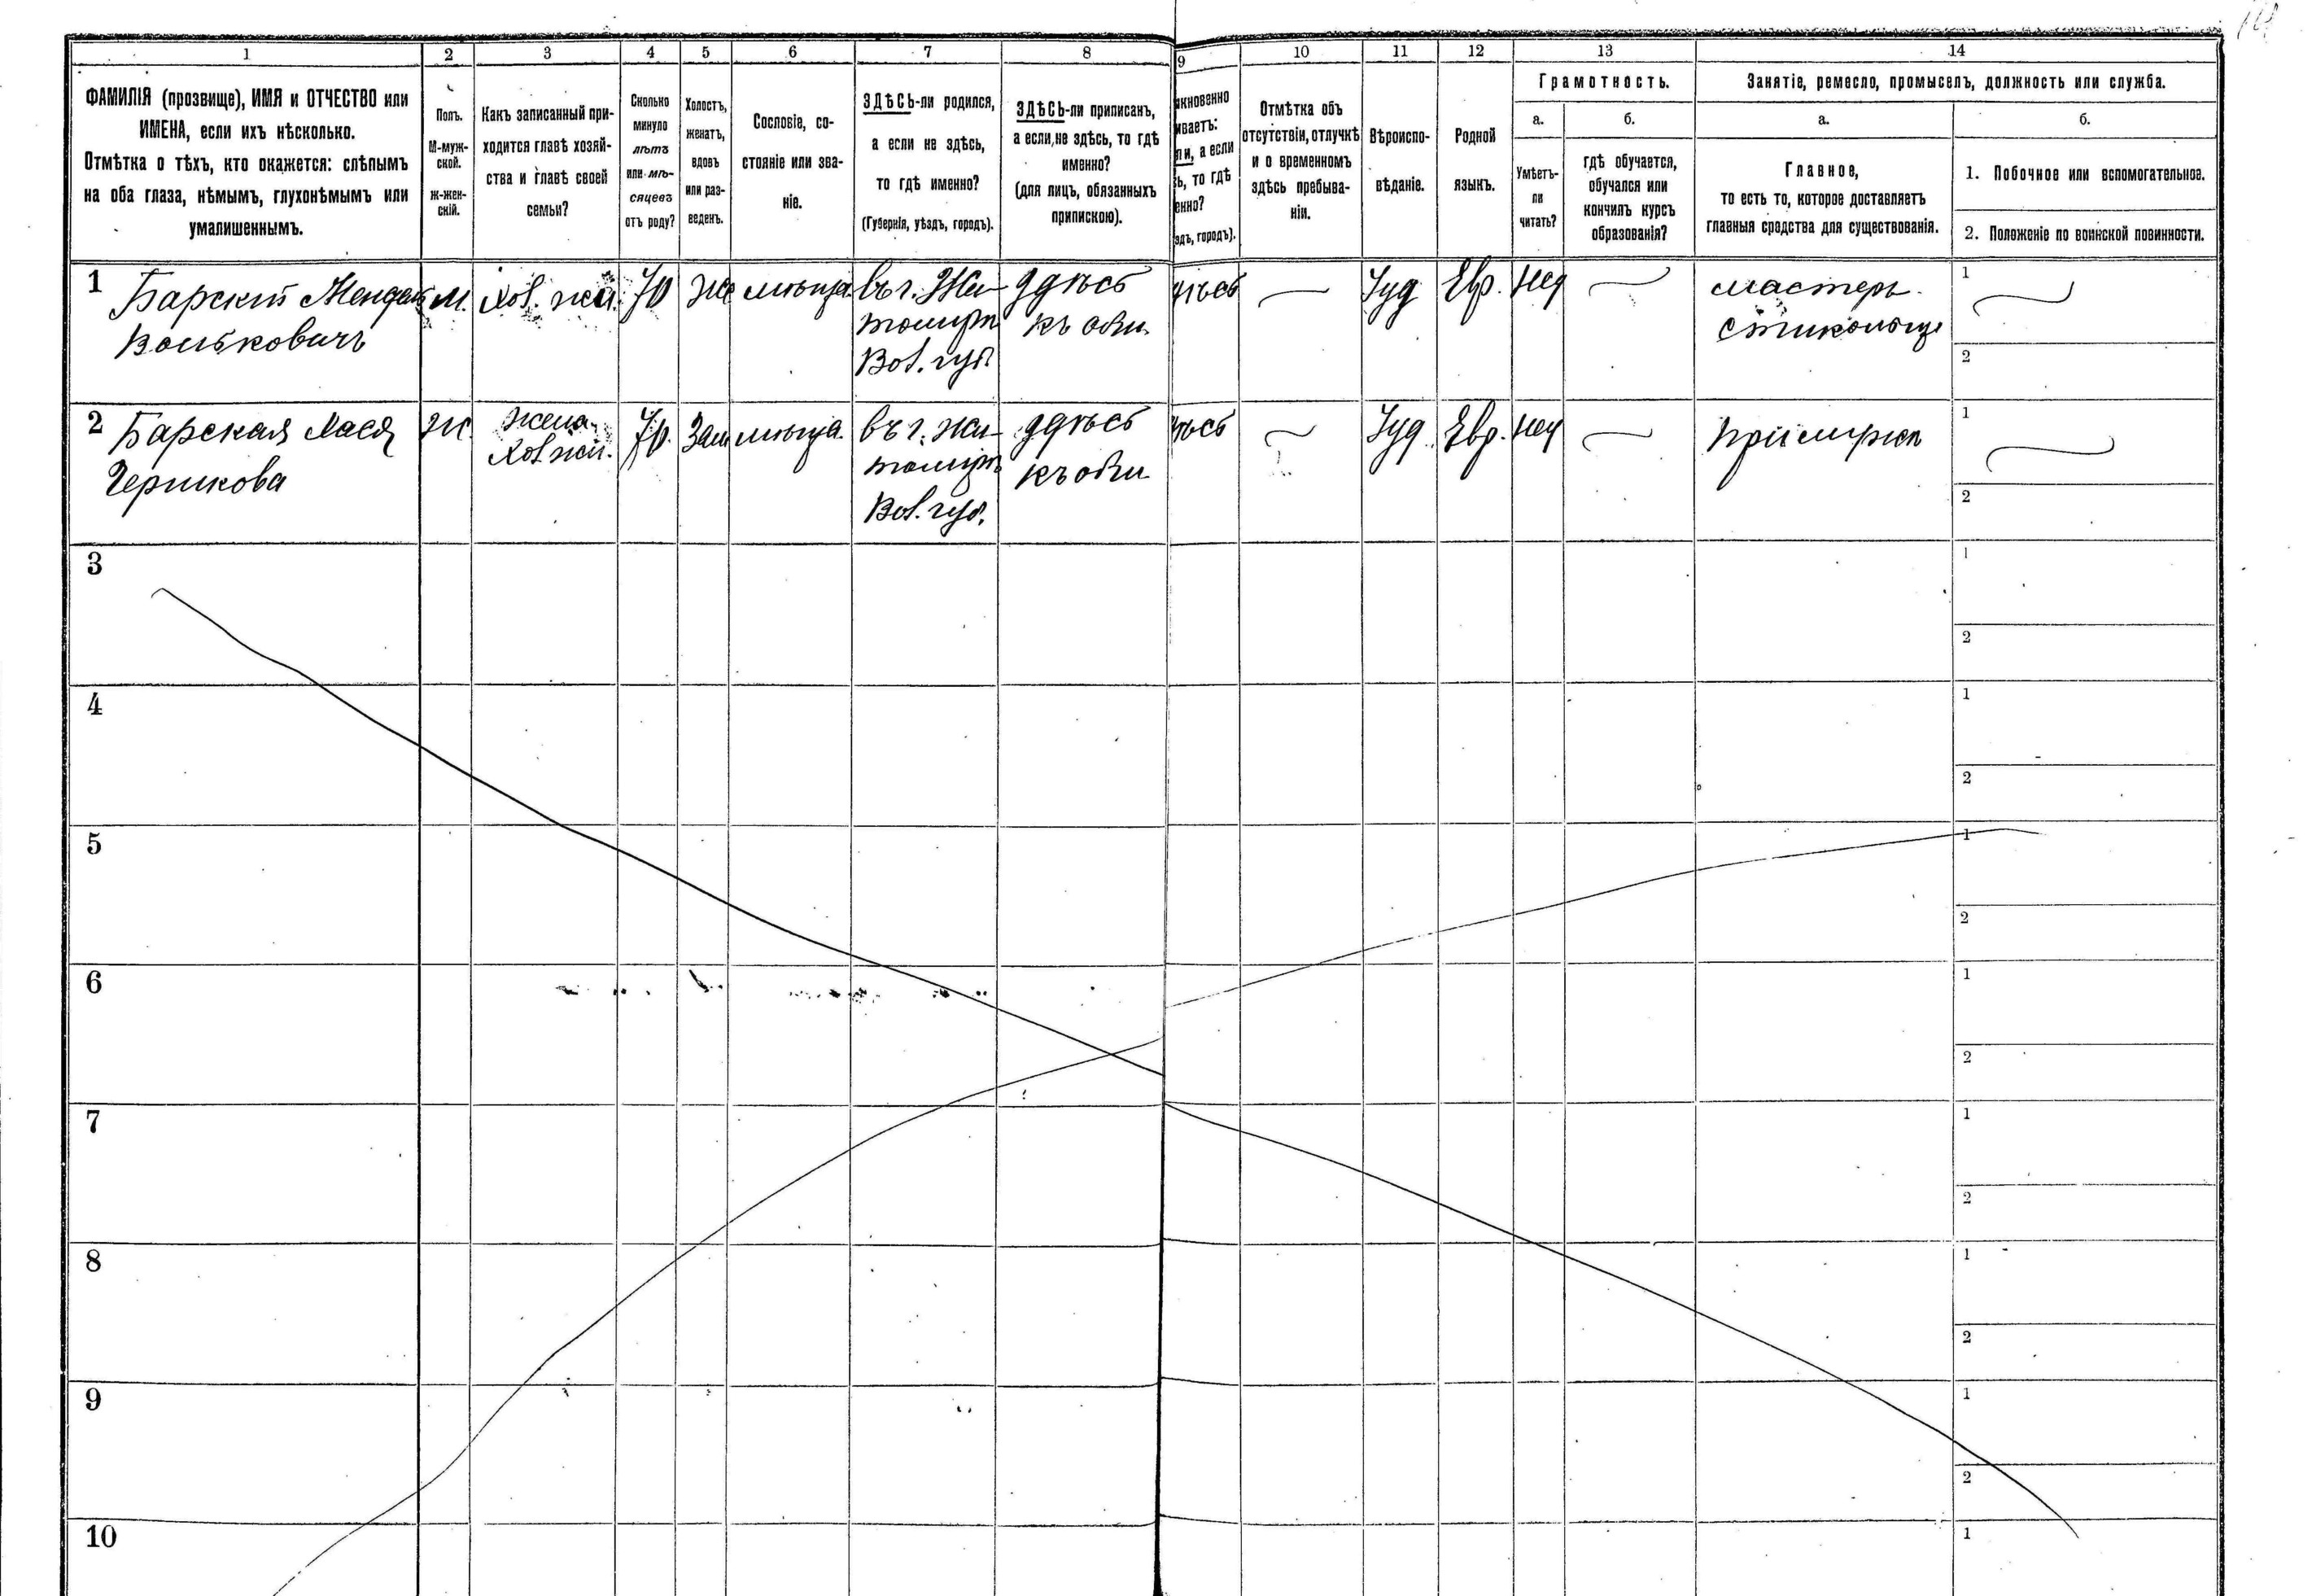 1 2 3 4 5 6 7 8 9 10 11 12 13 14
ФАМИЛІЯ (прозвище), ИМЯ и ОТЧЕСТВО или
ИМЕНА, если ихъ нѣсколько.
Отмѣтка о тѣхъ, кто окажется: слѣпымъ
на оба глаза, нѣмымъ, глухонѣмымъ или
умалишеннымъ.
Полъ.
М-муж-
ской.
ж-жен-
скій.
Какъ записанный при-
ходится главѣ хозяй-
ства и главѣ своей
семьи?
Сколько
минуло
лѣтъ
или мѣ-
сяцевъ
отъ роду?
Холостъ,
женатъ,
вдовъ
или раз-
веденъ.
Сословіе, со-
стояніе или зва-
ніе.
ЗДѢСЬ-ли родился,
а если не здѣсь,
то гдѣ именно?
(Губернія, уѣздъ, городъ).
ЗДѢСЬ-ли приписанъ,
а если не здѣсь, то гдѣ
именно?
(для лицъ, обязанныхъ
припискою).
кновенно
иваетъ:
ли, а если
ь, то гдѣ
енно?
здъ, городъ).
Отмѣтка объ
отсутствіи, отлучкѣ
и о временномъ
здѣсь пребыва-
ніи.
Вѣроиспо-
вѣданіе.
Родной
языкъ.
Грамотность.
а.
Умѣетъ-
ли
читать?
б.
гдѣ обучается,
обучался или
кончилъ курсъ
образованія?
Занятіе, ремесло, промыселъ, должность или служба.
а.
Главное,
то есть то, которое доставляетъ
главныя средства для существованія.
б.
1. Побочное или вспомогательное.
2. Положеніе по воинской повинности.
1
Барскій
Вольковичъ
м.
70
Же
въ г. Жи-
томирѣ
Вол. губ.
здѣсь
къ общ.
Іуд
Евр.
мастеръ
1
2
2
Барская
Гершкова
Ж.
жена
70.
Зам
въ г. Жи-
томирѣ
Вол. губ.
здѣсь
къ общ
Іуд.
Евр.
при мужѣ
1
2
3
1
2
4
1
2
5
1
2
6
1
2
7
1
2
8
1
2
9
1
2
10
1